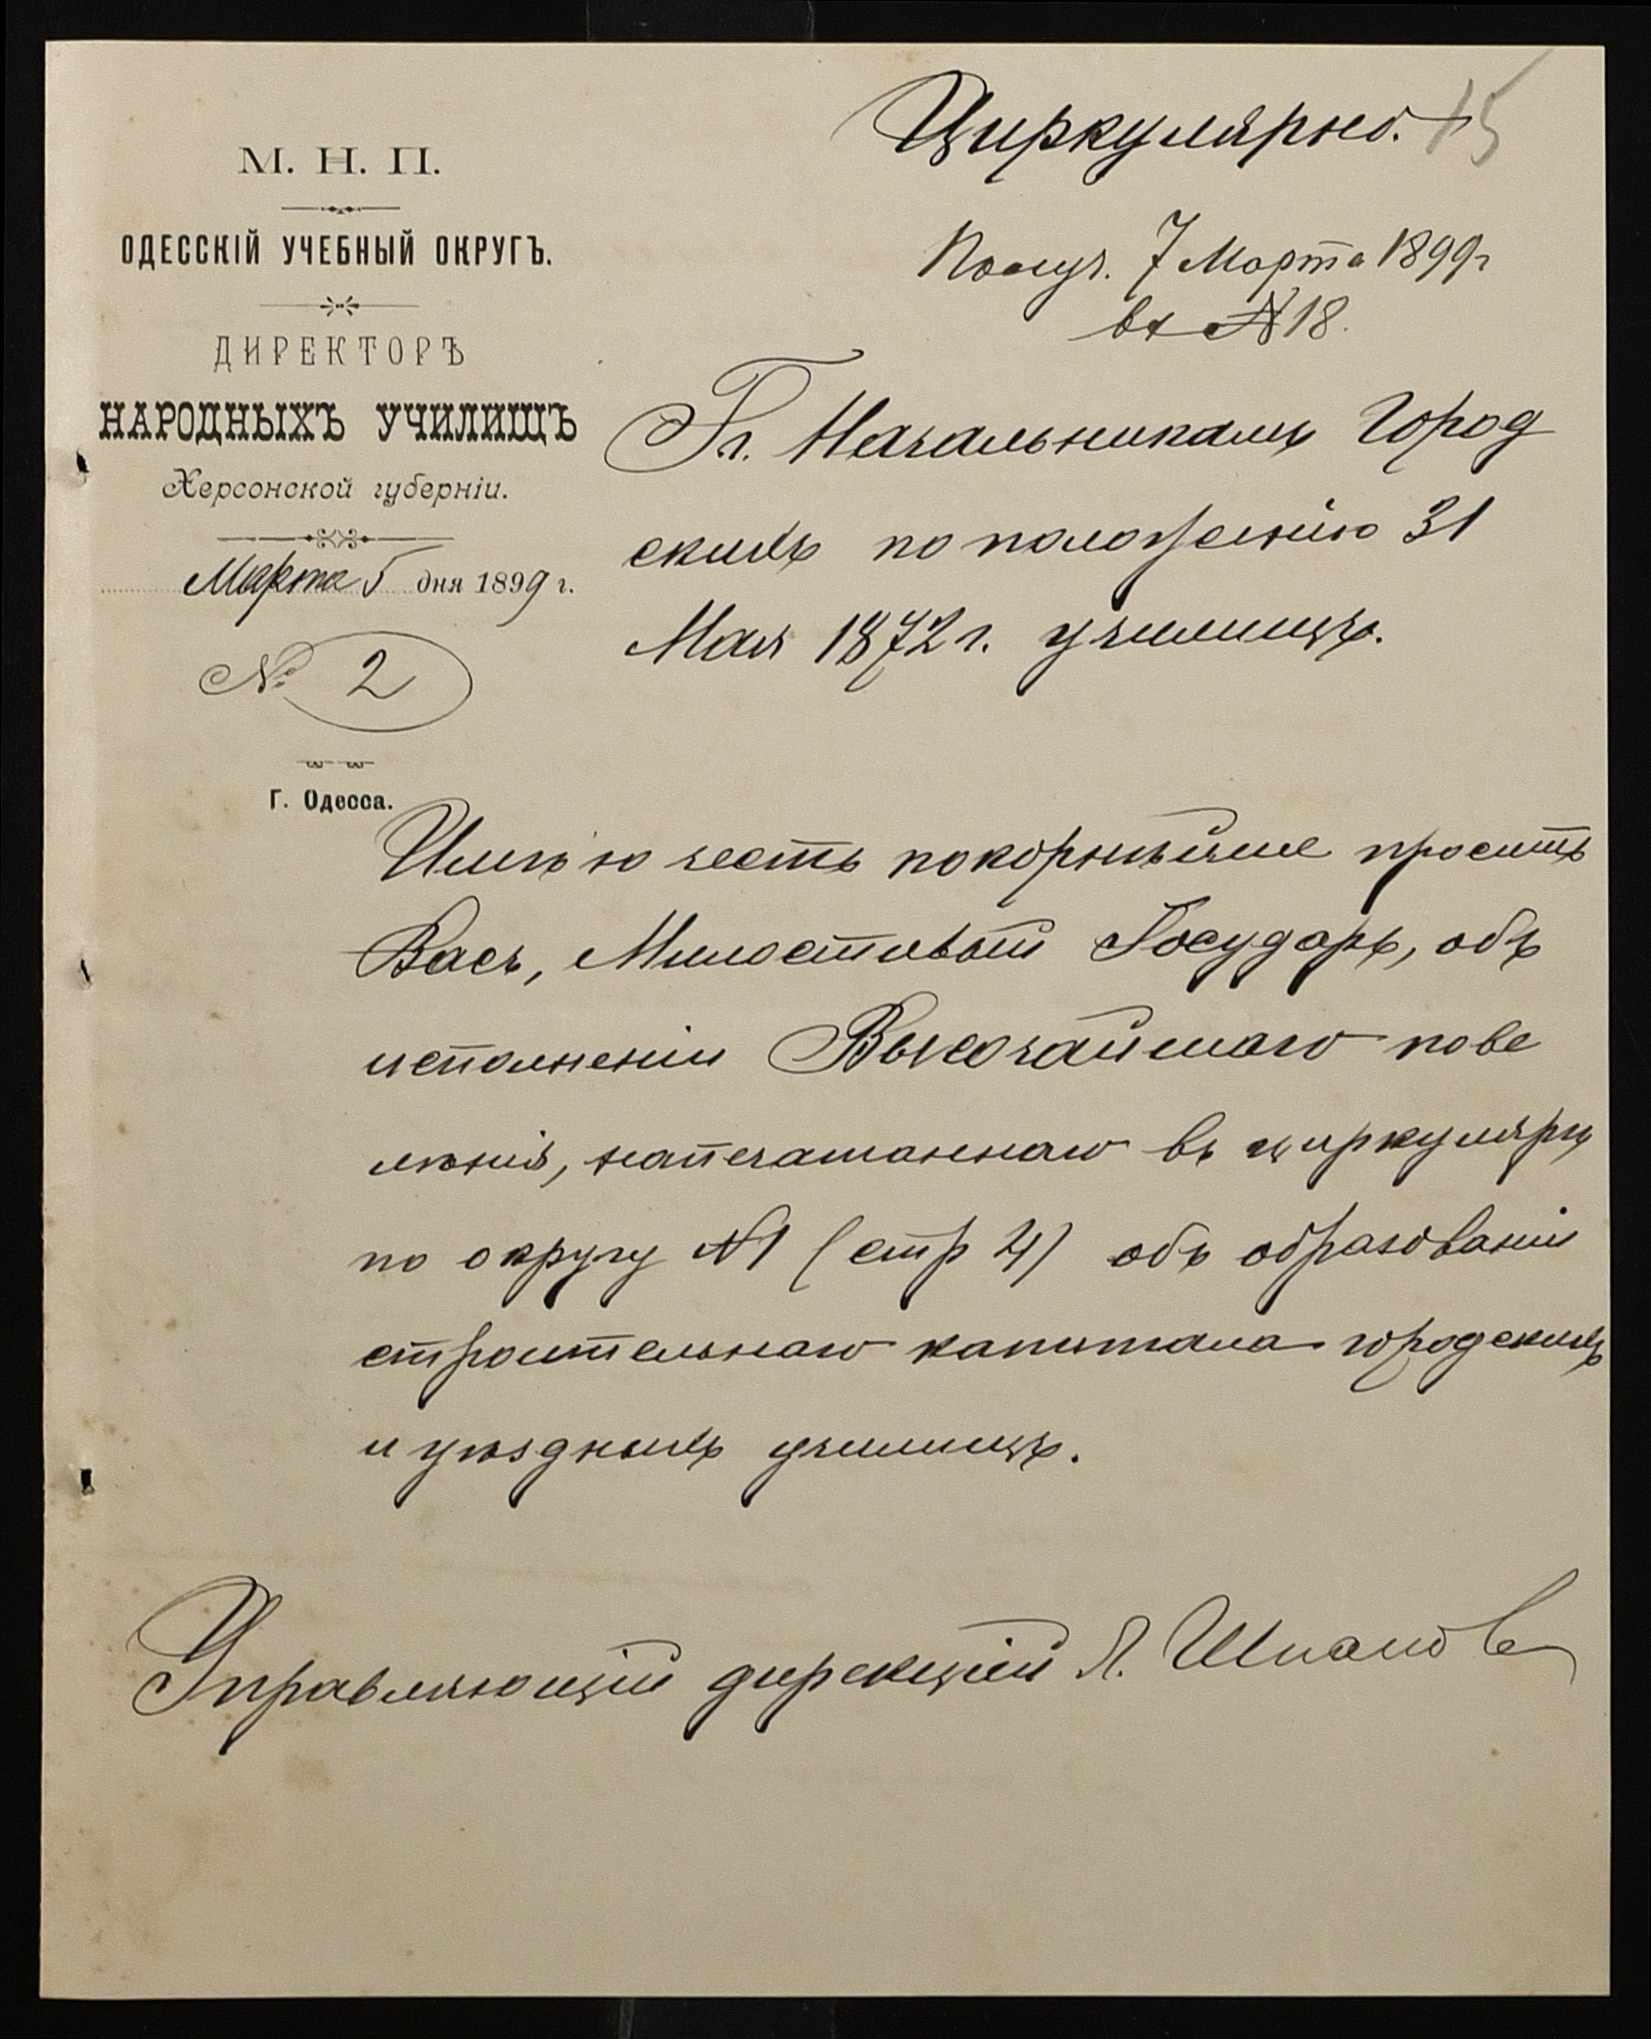 Циркулярно.
15
М. Н. П.
ОДЕССКІЙ УЧЕБНЫЙ ОКРУГЪ.
ДИРЕКТОРЪ
НАРОДНЫХЪ УЧИЛИЩЪ
Херсонской губерніи.
Марта 5 дня 1899 г.
№ 2
Г. Одесса.
Получ. 7 Марта 1899 г
вх № 18.
Гг. Начальникамъ Город
скихъ по положенію 31
Мая 1872 г. училищъ.
Имѣю честь покорнѣйше просить
Васъ, Милостивый Государь, объ
исполненіи Высочайшаго пове
лѣнія, напечатаннаго въ циркулярѣ
по округу №1 (стр 4) объ образованіи
строительнаго капитала городскихъ
и уѣздныхъ училищъ.
Управляющій дирекціей Л.